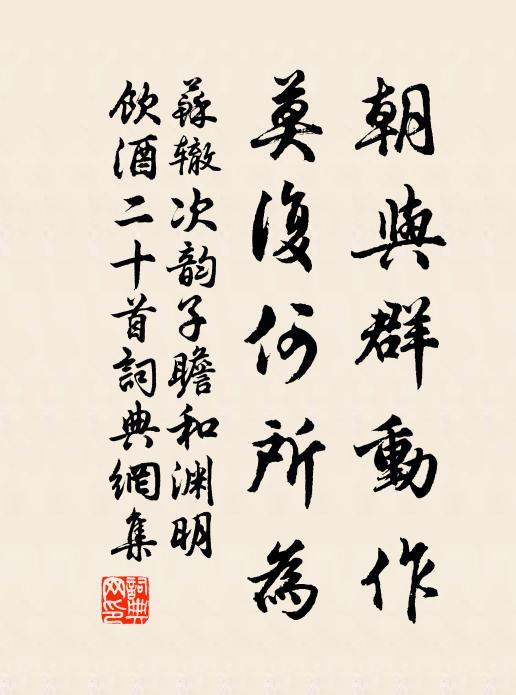 朝與群動作
莫復何所為
蘇辙次韵子瞻和淵明
飲酒二十首詞典網集
詞典
网印